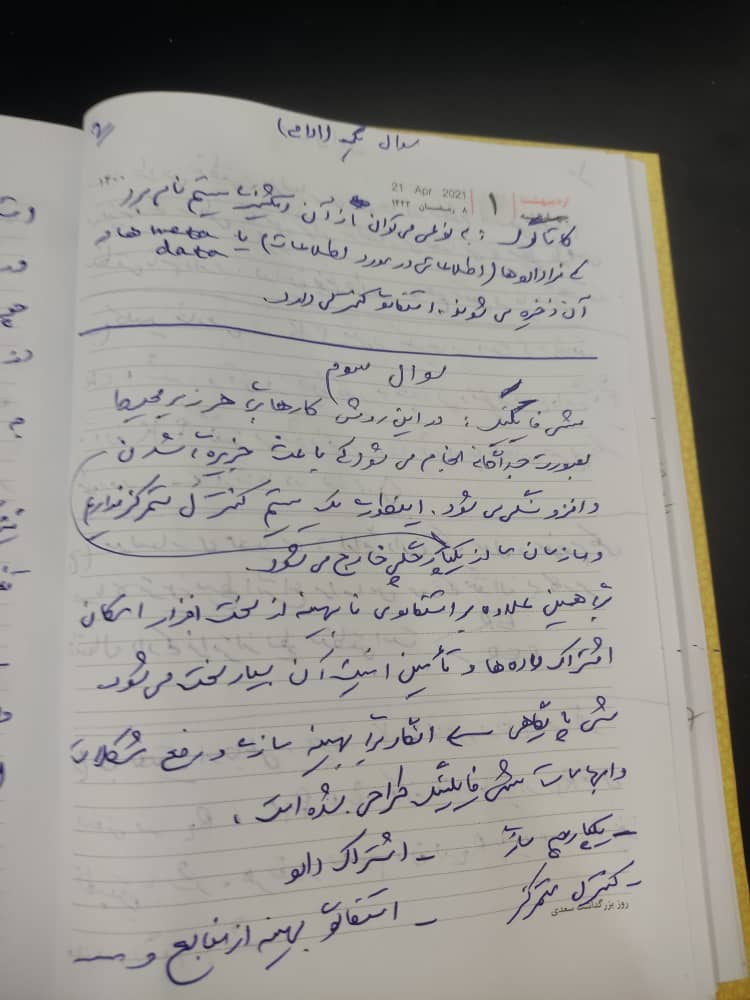 سوال یک (ادامه)
۱۴۰۰
21 Apr 2021
۸ رمضان ۱۴۴۲
۱
اردیبهشت
چهارشنبه
کاتالوگ : به نوعی می‌توان از آن سیستم نام برد
که فراداده‌ها (اطلاعاتی در مورد اطلاعات) یا meta data ها در
آن ذخیره می شوند. استفاده کنترلی دارد.
سوال سوم
مشی فایلینگ : در این روش کارهای هر زیر محیط
بصورت جداگانه انجام می شود که باعث جزیره‌ای شدن
و افزونگی می شود. اینطوری یک سیستم کنترل متمرکز نداریم
و سازمان ما از یکپارچگی خارج می شود.
برای همین علاوه بر استفاده‌ی نا بهینه از سخت افزار امکان
اشتراک داده ها و تأمین امنیت آن بسیار سخت می شود.
مشی پایگاهی انگار برای بهینه سازی و رفع مشکلات
مشی فایلینگ طراحی شده است.
- یکپارچه سازی - اشتراک داده
- کنترل متمرکز - استفاده بهینه از منابع و ...
روز بزرگداشت سعدی